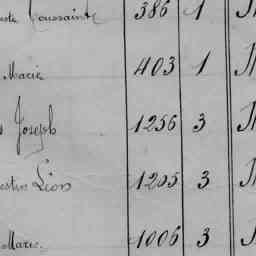 Toussainte 386 1
Marie 403 1 M
Joseph 1256 3 M
Léon 1205 3 M
Marie 1006 3 M